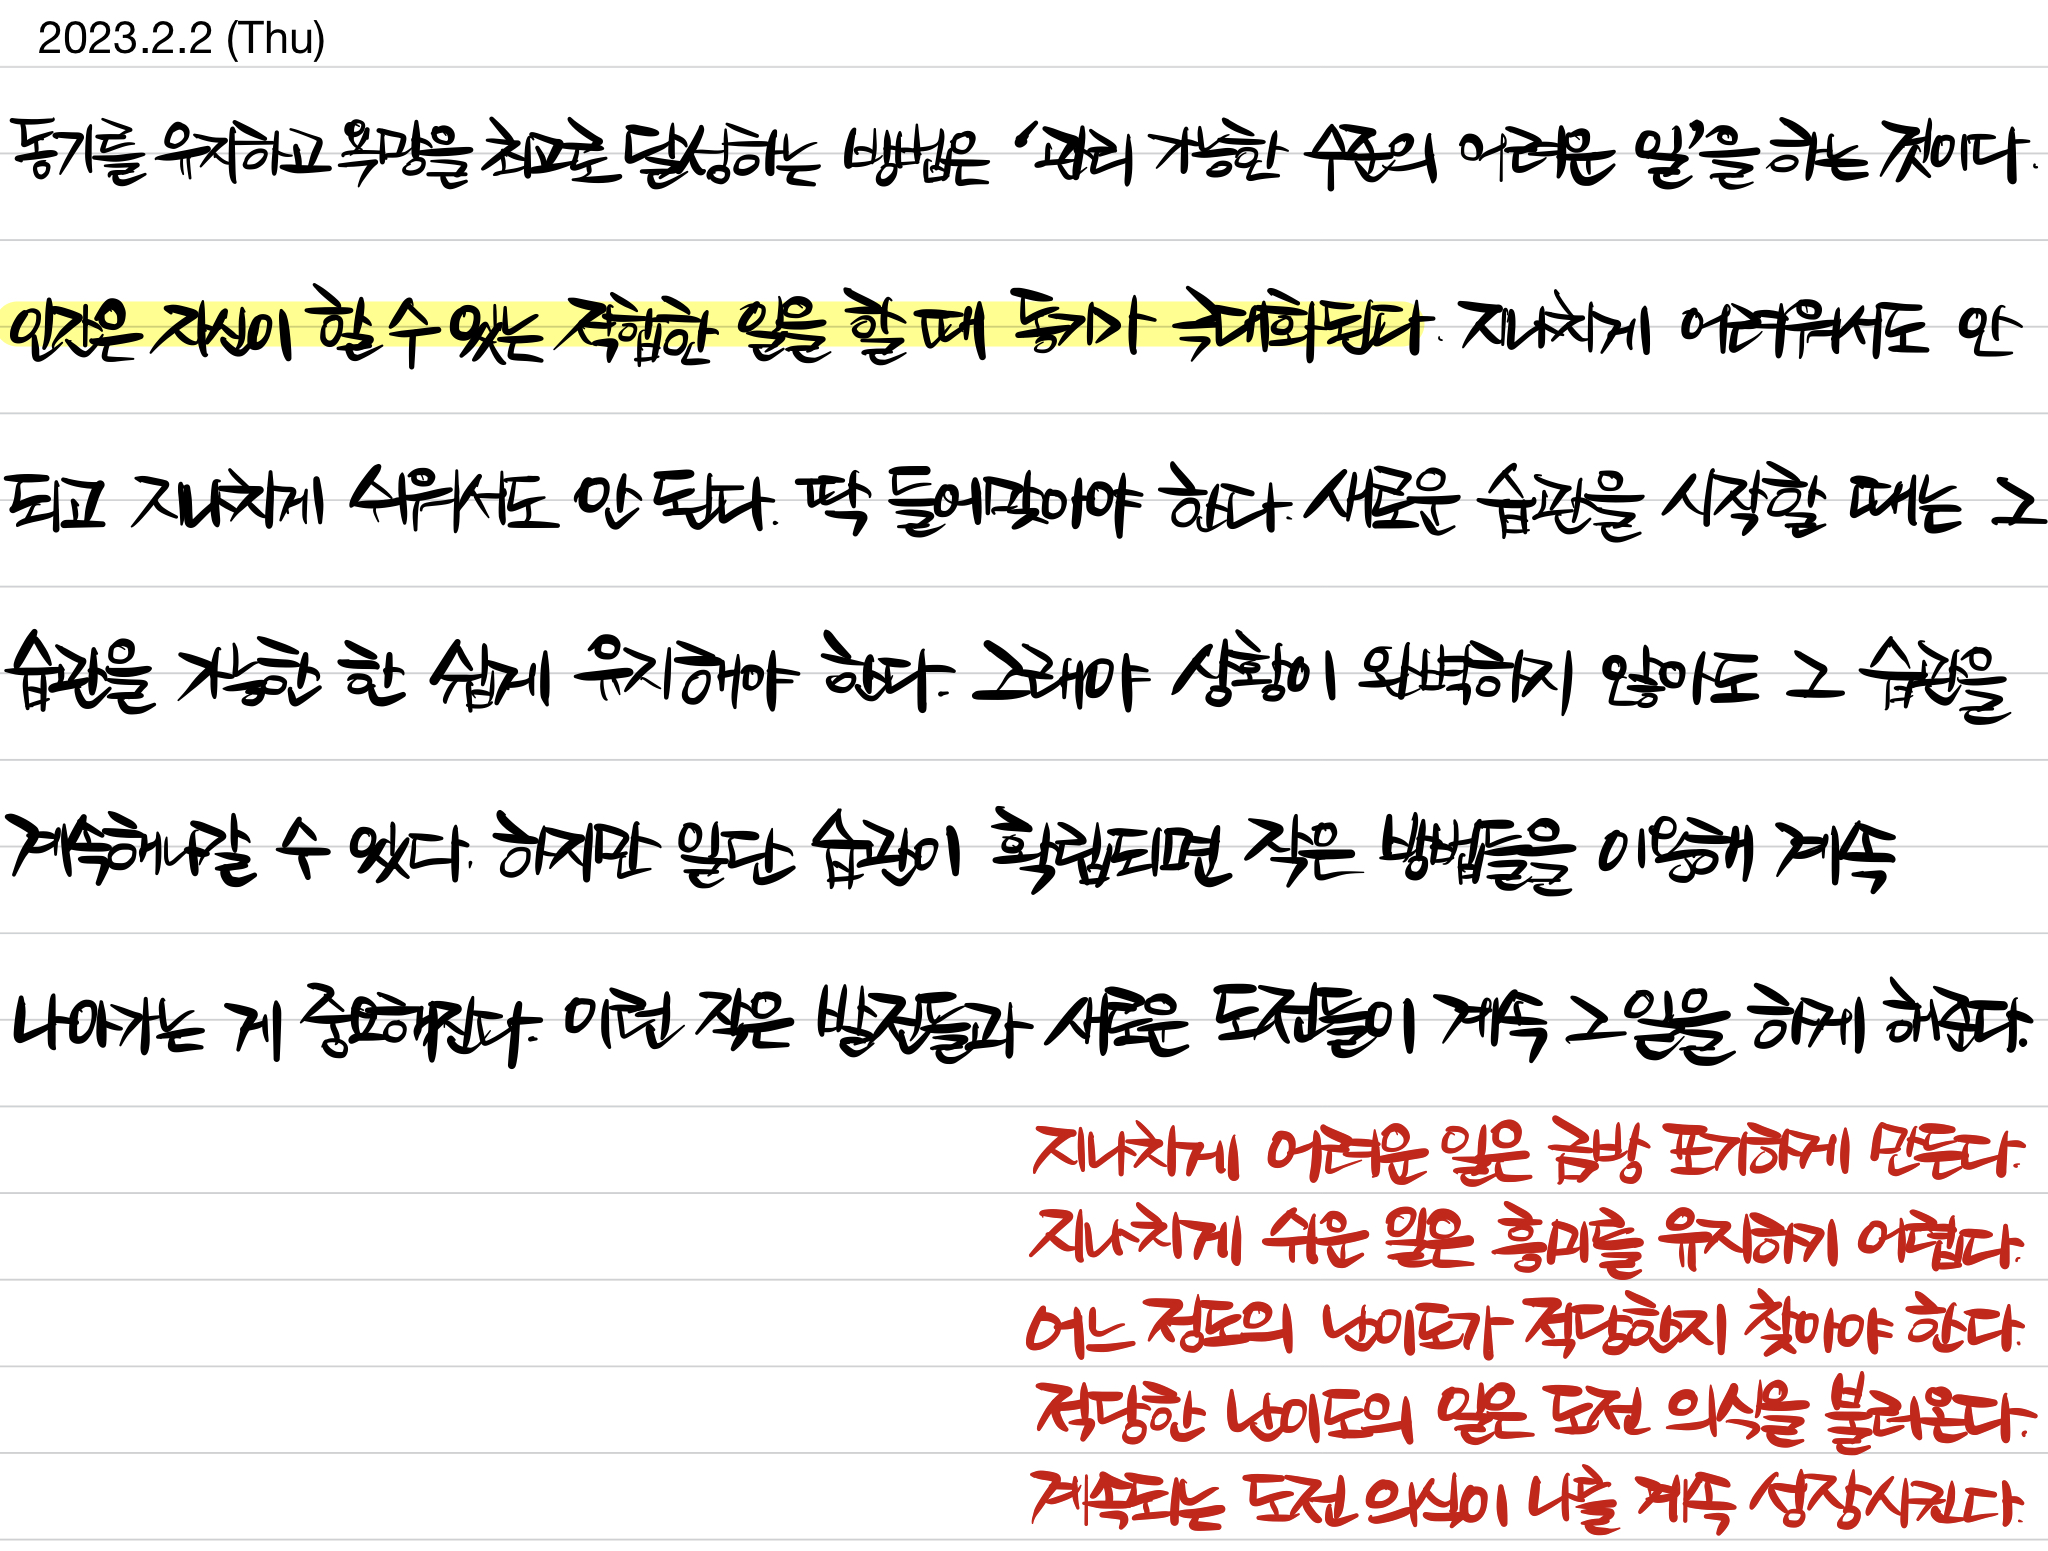 2023.2.2 (Thu)
동기를 유지하고 욕망을 최고로 달성하는 방법은 ‘관리 가능한 수준의 어려운 일’을 하는 것이다.
인간은 자신이 할 수 있는 적합한 일을 할 때 동기가 극대화된다. 지나치게 어려워서도 안
되고 지나치게 쉬워서도 안 된다. 딱 들어맞아야 한다. 새로운 습관을 시작할 때는 그
습관을 가능한 한 쉽게 유지해야 한다. 그래야 상황이 완벽하지 않아도 그 습관을
계속해나갈 수 있다. 하지만 일단 습관이 확립되면 작은 방법들을 이용해 계속
나아가는 게 중요해진다. 이런 작은 발전들과 새로운 도전들이 계속 그 일을 하게 해준다.
지나치게 어려운 일은 금방 포기하게 만든다.
지나치게 쉬운 일은 흥미를 유지하기 어렵다.
어느 정도의 난이도가 적당한지 찾아야 한다.
적당한 난이도의 일은 도전 의식을 불러온다.
계속되는 도전 의식이 나를 계속 성장시킨다.